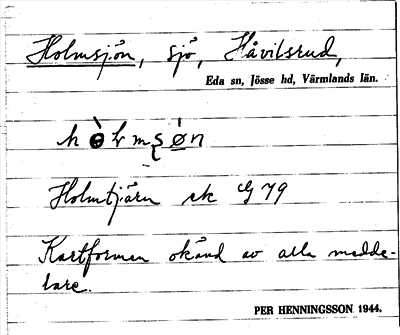 Holmsjön, sjö, Håvilsrud,
Eda sn, Jösse hd, Värmlands län.
Holmtjärn ek G 79
Kartformen okänd av alla medde-
lare.
PER HENNINGSSON 1944.